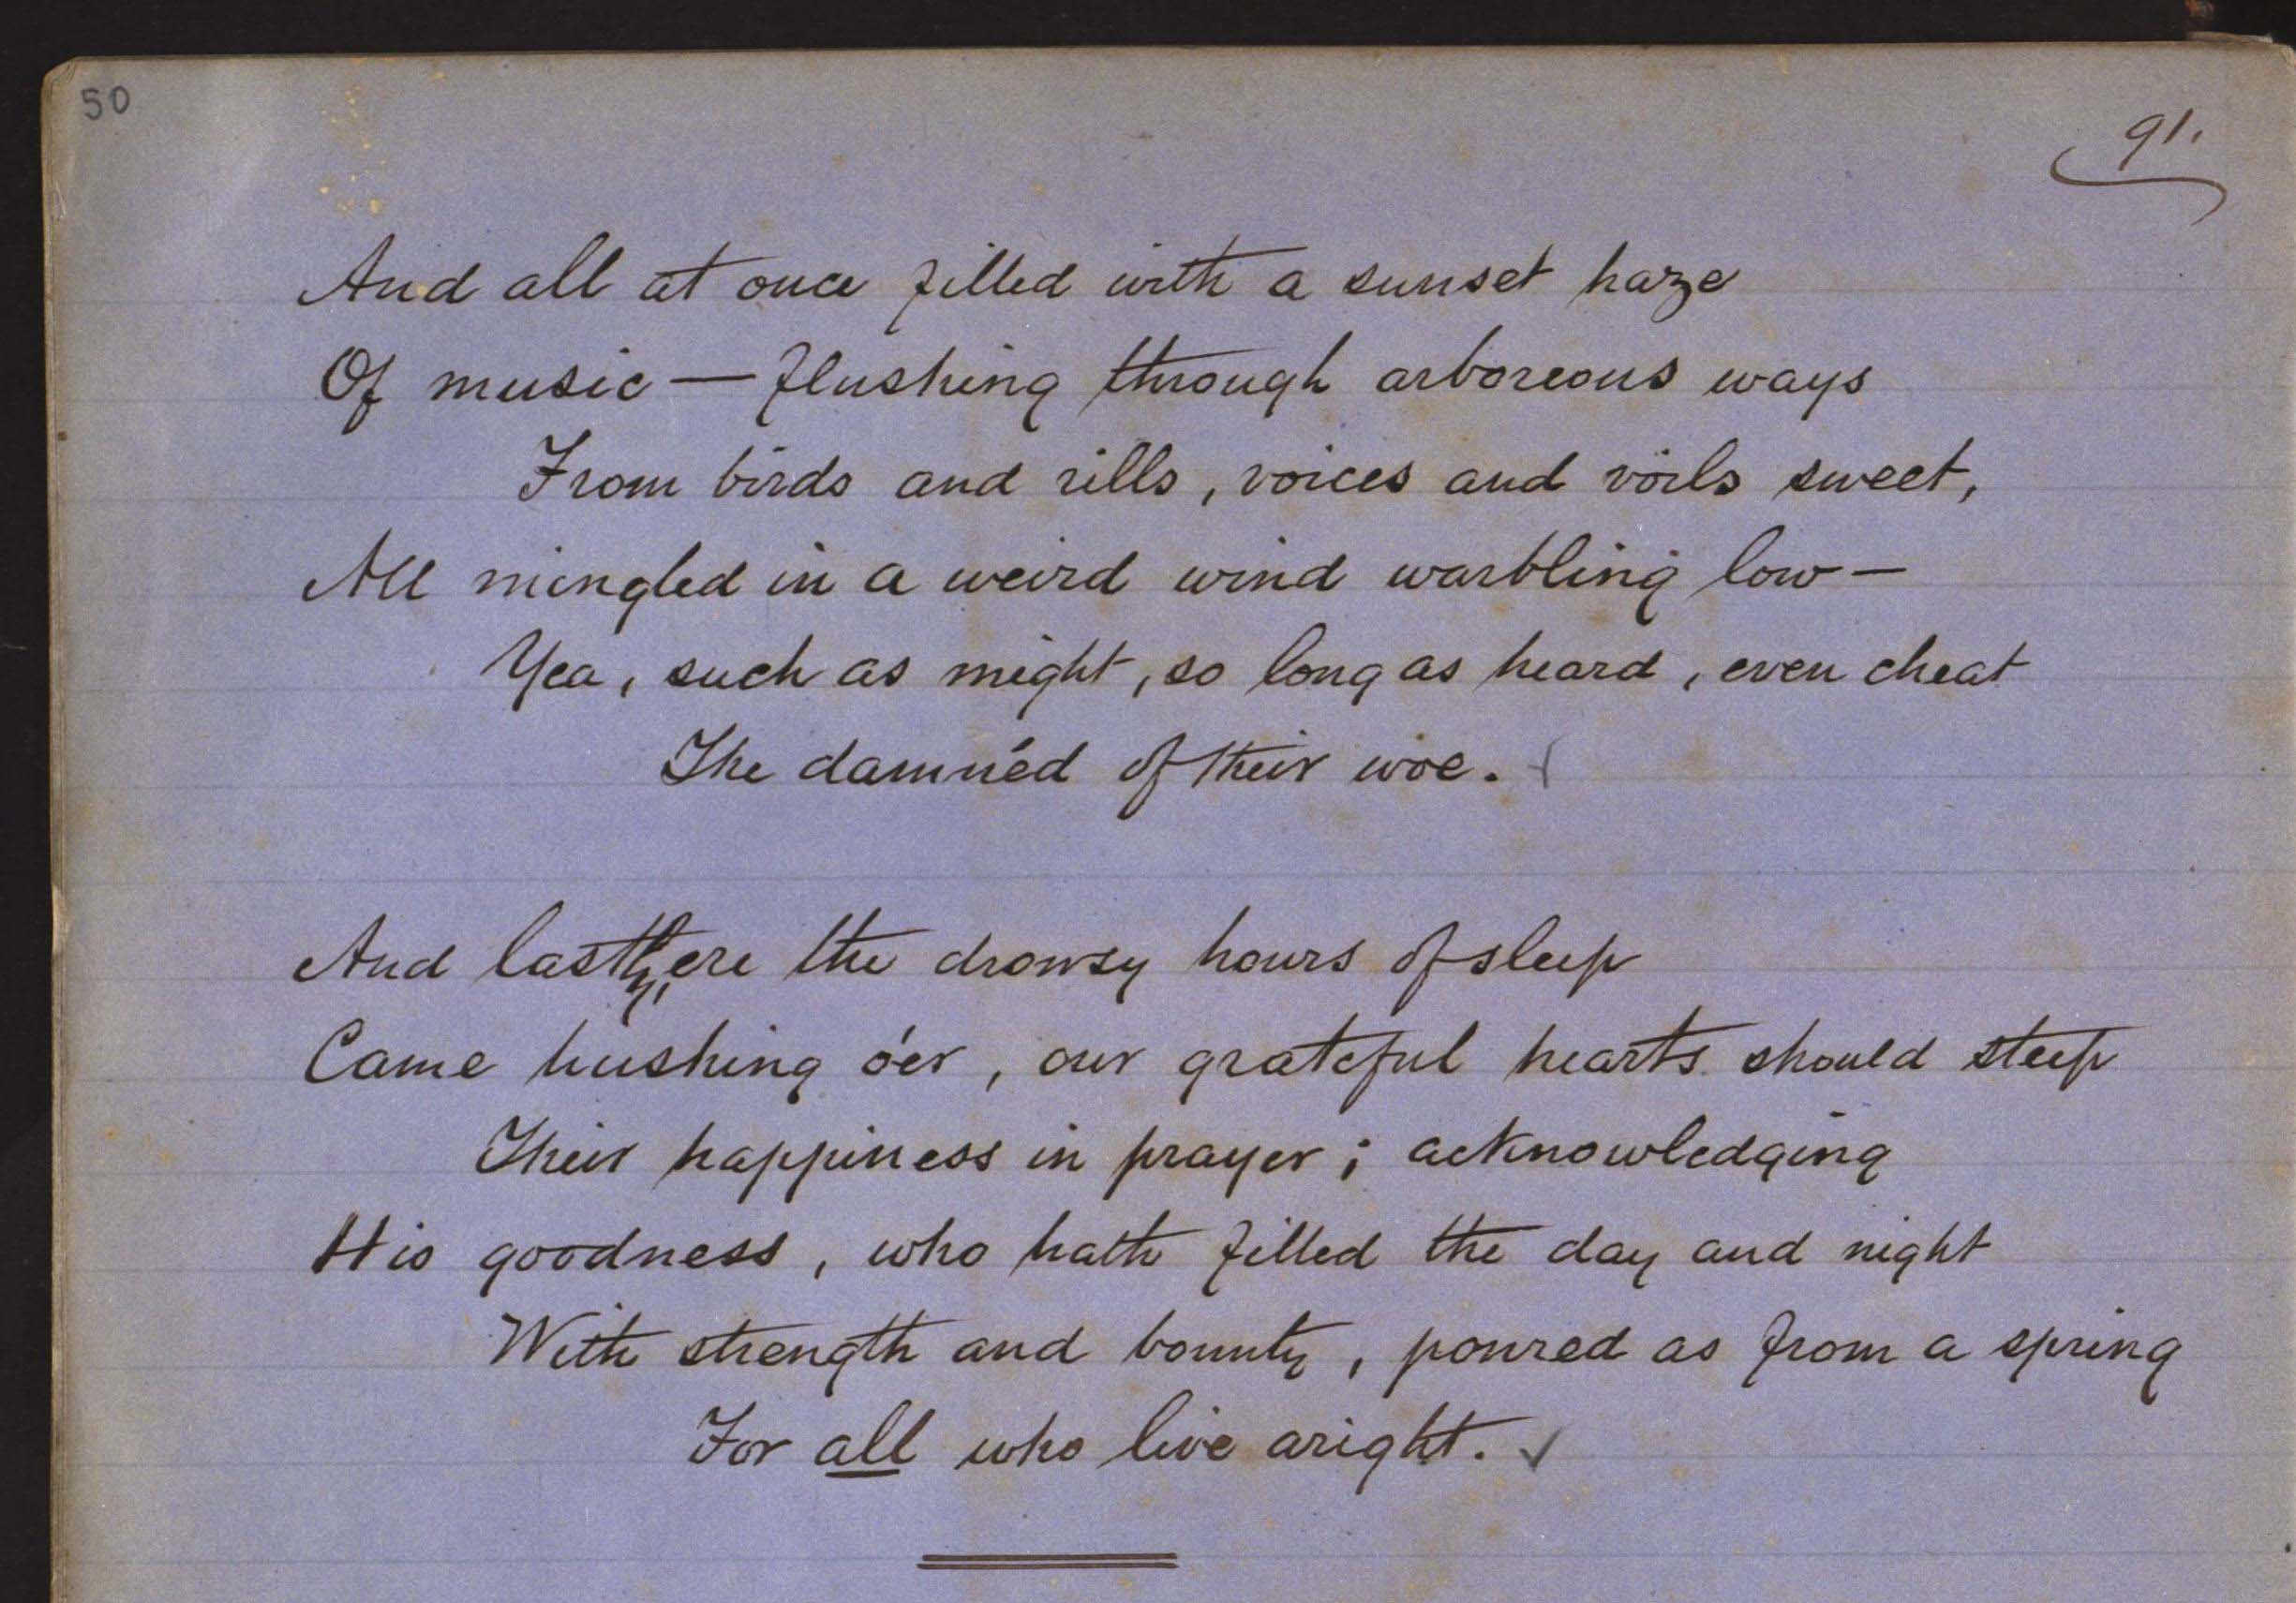 50
91.
And all at once filled with a sunset haze
Of music — flushing through arboreous ways
From birds and rills, voices and voils sweet,
All mingled in a weird wind warbling low —
Yea, such as might, so long as heard, even cheat
The damnéd of their woe.
And lastly, ere the drowsy hours of sleep
Came hushing o'er, our grateful hearts should steep
Their happiness in prayer; acknowledging
His goodness, who hath filled the day and night
With strength and bounty, poured as from a spring
For all who live aright.